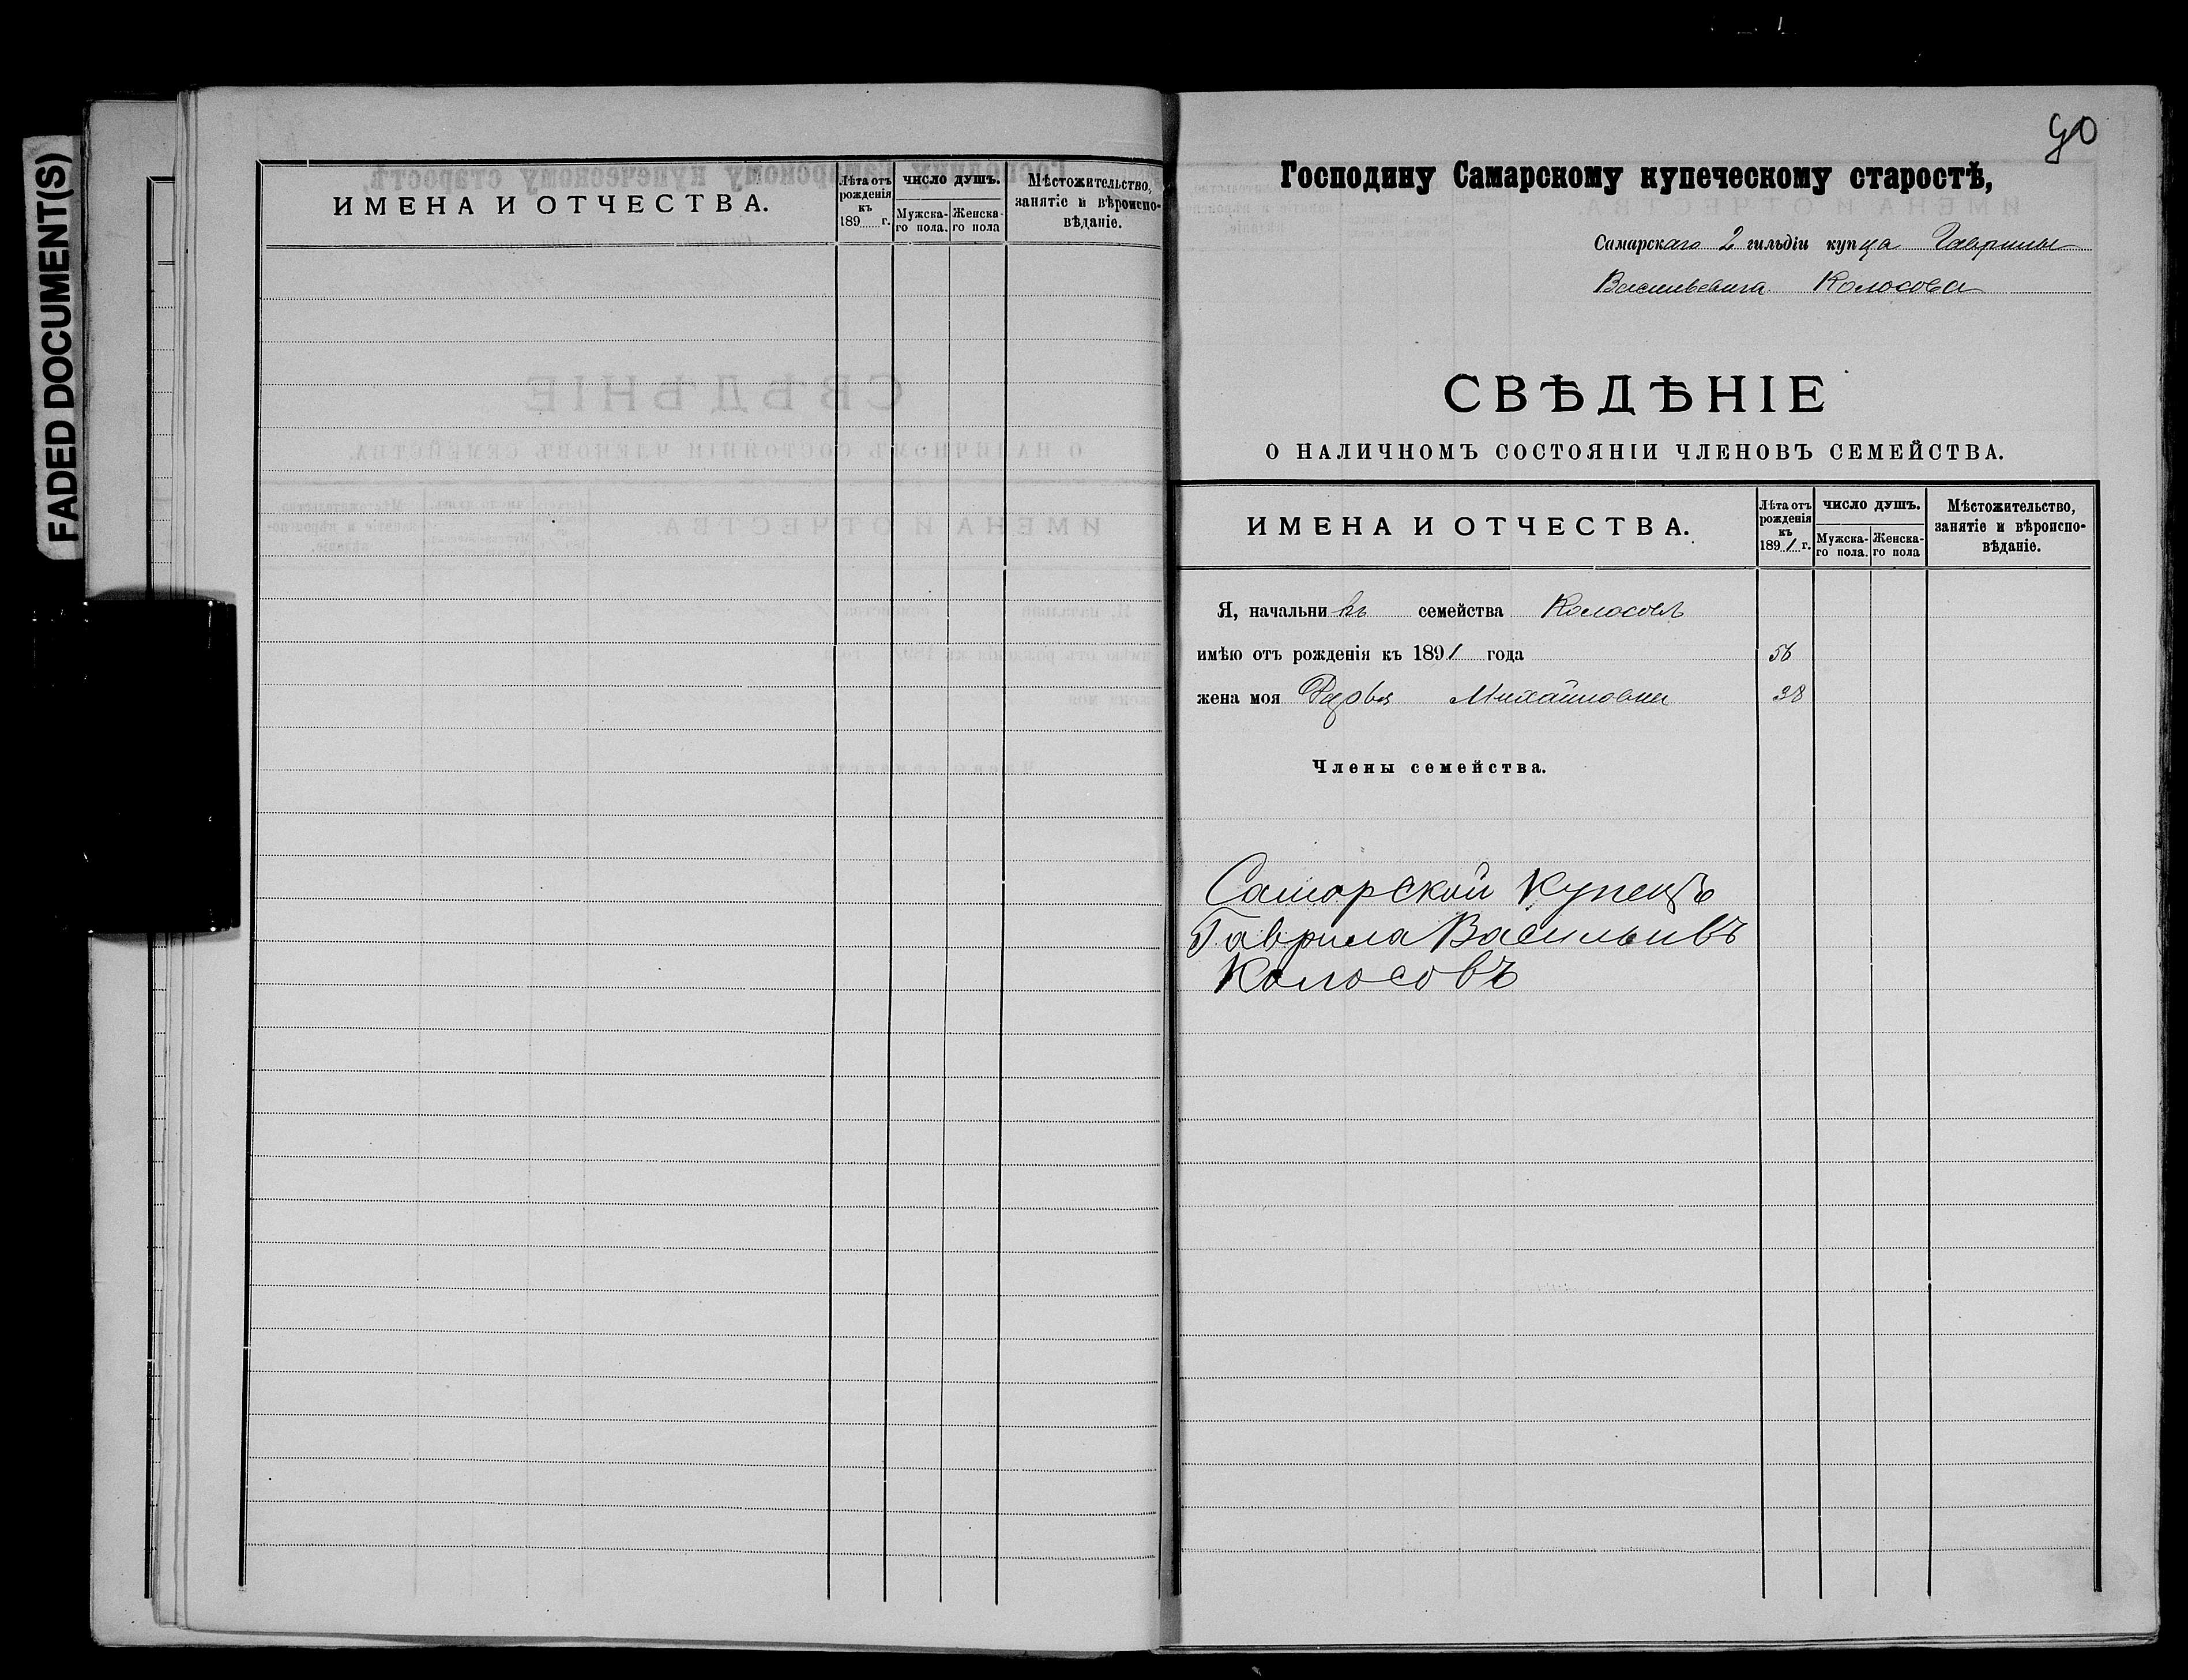 FADED DOCUMENT(S)
ИМЕНА И ОТЧЕСТВА.
Лѣта отъ рожденія къ 189 г.
ЧИСЛО ДУШЪ.
Мужска-го пола.
Женска-го пола
Мѣстожительство, занятіе и вѣроиспо-вѣданіе.
90
Господину Самарскому купеческому старостѣ,
Самарскаго 2 гильдіи купца Гаврилы
Васильевича Колосова
СВѢДѢНІЕ
О НАЛИЧНОМЪ СОСТОЯНІИ ЧЛЕНОВЪ СЕМЕЙСТВА.
ИМЕНА И ОТЧЕСТВА.
Лѣта отъ рожденія къ 1891 г.
ЧИСЛО ДУШЪ.
Мужска-го пола.
Женска-го пола
Мѣстожительство, занятіе и вѣроиспо-вѣданіе.
Я, начальникъ семейства Колосовъ
имѣю отъ рожденія къ 1891 года 56
жена моя Дарья Михайловна 38
Члены семейства.
Саморской Купецъ
Гаврила Васильивъ
Колосовъ